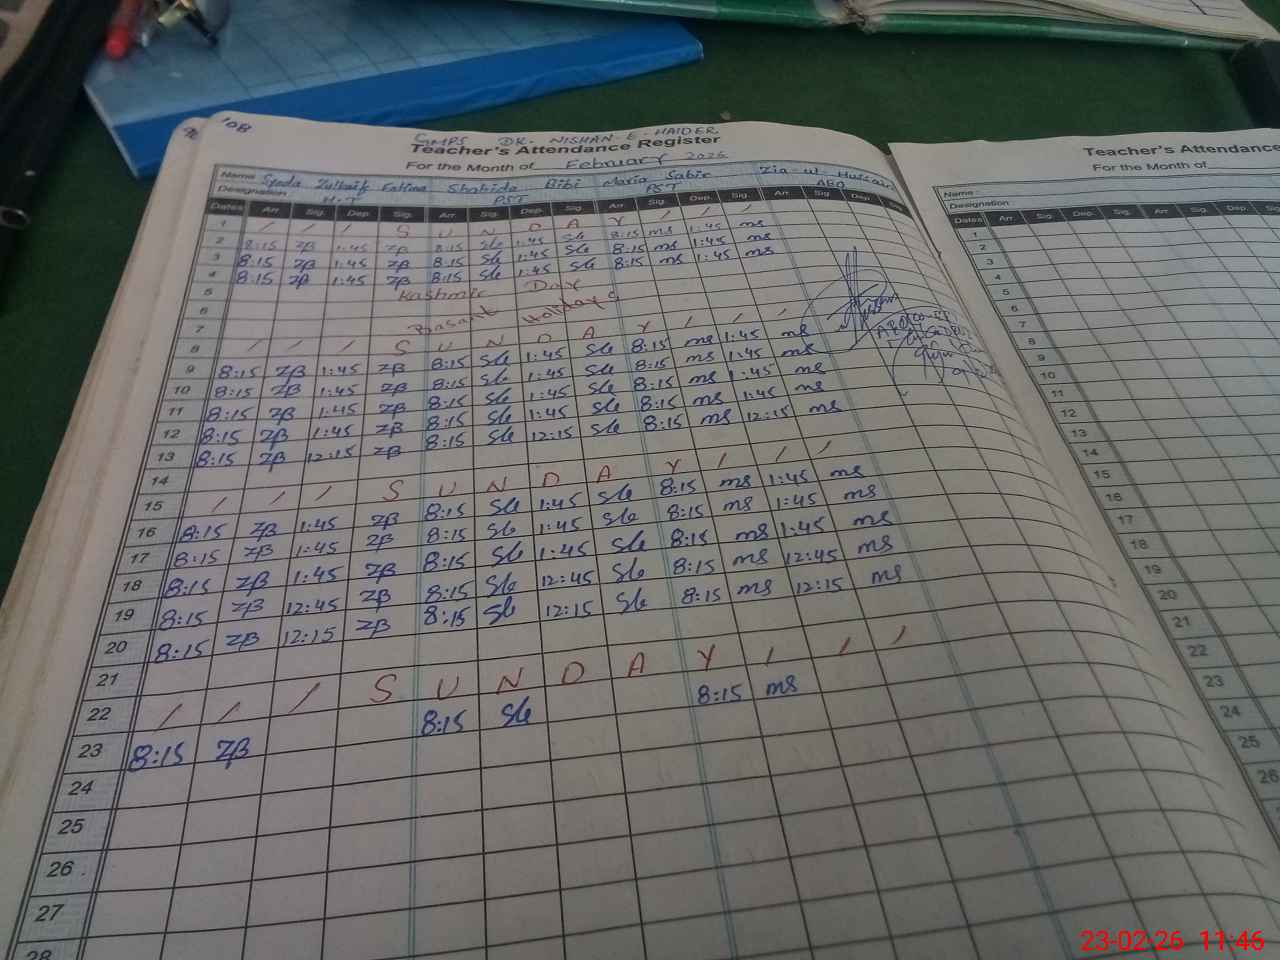 GMPS DK. NISHAN-E-HAIDER
Teacher's Attendance Register
For the Month of February 2026
Name Syeda Zulkaif Fatima Shahida Bibi Maria Sabir Zia-ul-Hussain
Designation H.T PST PST AEO
Dates Arr. Sig. Dep. Sig. Arr. Sig. Dep. Sig. Arr. Sig. Dep. Sig. Arr. Sig. Dep. Sig.
1 / / / S U N D A Y / / /
2 8:15 ZB 1:45 ZB 8:15 Sb 1:45 Sb 8:15 ms 1:45 ms
3 8:15 ZB 1:45 ZB 8:15 Sb 1:45 Sb 8:15 ms 1:45 ms
4 8:15 ZB 1:45 ZB 8:15 Sb 1:45 Sb 8:15 ms 1:45 ms
5 Kashmir Day
6 Basant Holidays
7
8 / / / S U N D A Y / / /
9 8:15 ZB 1:45 ZB 8:15 Sb 1:45 Sb 8:15 ms 1:45 ms
10 8:15 ZB 1:45 ZB 8:15 Sb 1:45 Sb 8:15 ms 1:45 ms
11 8:15 ZB 1:45 ZB 8:15 Sb 1:45 Sb 8:15 ms 1:45 ms
12 8:15 ZB 1:45 ZB 8:15 Sb 1:45 Sb 8:15 ms 1:45 ms
13 8:15 ZB 12:15 ZB 8:15 Sb 12:15 Sb 8:15 ms 12:15 ms
14
15 / / / S U N D A Y / / /
16 8:15 ZB 1:45 ZB 8:15 Sb 1:45 Sb 8:15 ms 1:45 ms
17 8:15 ZB 1:45 ZB 8:15 Sb 1:45 Sb 8:15 ms 1:45 ms
18 8:15 ZB 1:45 ZB 8:15 Sb 1:45 Sb 8:15 ms 1:45 ms
19 8:15 ZB 12:45 ZB 8:15 Sb 12:45 Sb 8:15 ms 12:45 ms
20 8:15 ZB 12:15 ZB 8:15 Sb 12:15 Sb 8:15 ms 12:15 ms
21
22 / / / S U N D A Y / / /
23 8:15 ZB 8:15 Sb 8:15 ms
24
25
26
27
28
Teacher's Attendance
For the Month of
Name
Designation
Dates Arr. Sig. Dep. Sig. Arr. Sig. Dep. Sig.
1
2
3
4
5
6
7
8
9
10
11
12
13
14
15
16
17
18
19
20
21
22
23
24
25
26
23-02-26 11:46